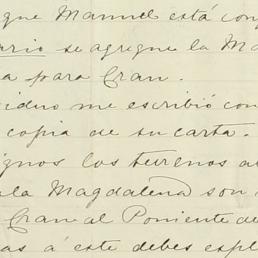 que Manuel está con
ario se agregue la Ma
a para Cran.
me escribió con
copia de su carta.
los terrenos a
la Magdalena son
Cran al Poniente de
as á este debes expl